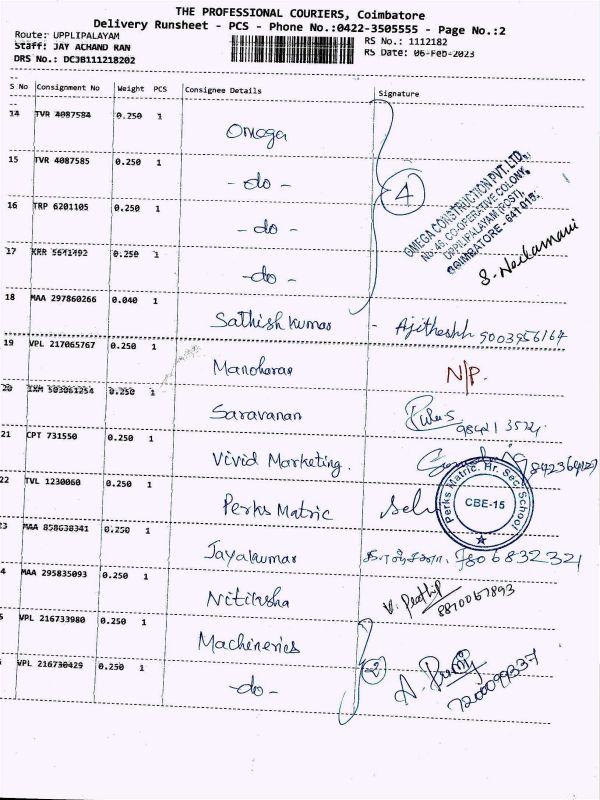 THE PROFESSIONAL COURIERS, Coimbatore
Delivery Runsheet - PCS - Phone No.:0422-3505555 - Page No.:2
Route: UPPLIPALAYAM
RS No.: 1112182
Staff: JAY ACHAND RAN
RS Date: 06-Feb-2023
DRS No.: DCJB111218202
S No Consignment No Weight PCS Consignee Details Signature
14 TVR 4087584 0.250 1 Omega
15 TVR 4087585 0.250 1 - do -
4
OMEGA CONSTRUCTION PVT. LTD.
No:46, CO-OPERATIVE COLONY,
UPPLIPALAYAM (POST),
COIMBATORE - 641 015.
16 TRP 6201105 0.250 1 - do -
17 KRR 5641492 0.250 1 -do-
18 MAA 297860266 0.040 1 Sathish Kumar - Ajitheshh 9003956164
19 VPL 217065767 0.250 1 Manoharan N/P.
20 0.250 1 Saravanan
21 CPT 731550 0.250 1 Vivid Marketing.
22 TVL 1230060 0.250 1 Perks Matric Selv
Perks Matric. Hr. Sec. School
CBE-15
3 MAA 858638341 0.250 1 Jayakumar 9806832321
4 MAA 295835093 0.250 1 Nitiksha 8870067893
VPL 216733980 0.250 1 Machineries
2
VPL 216730429 0.250 1 -do- 7200099337